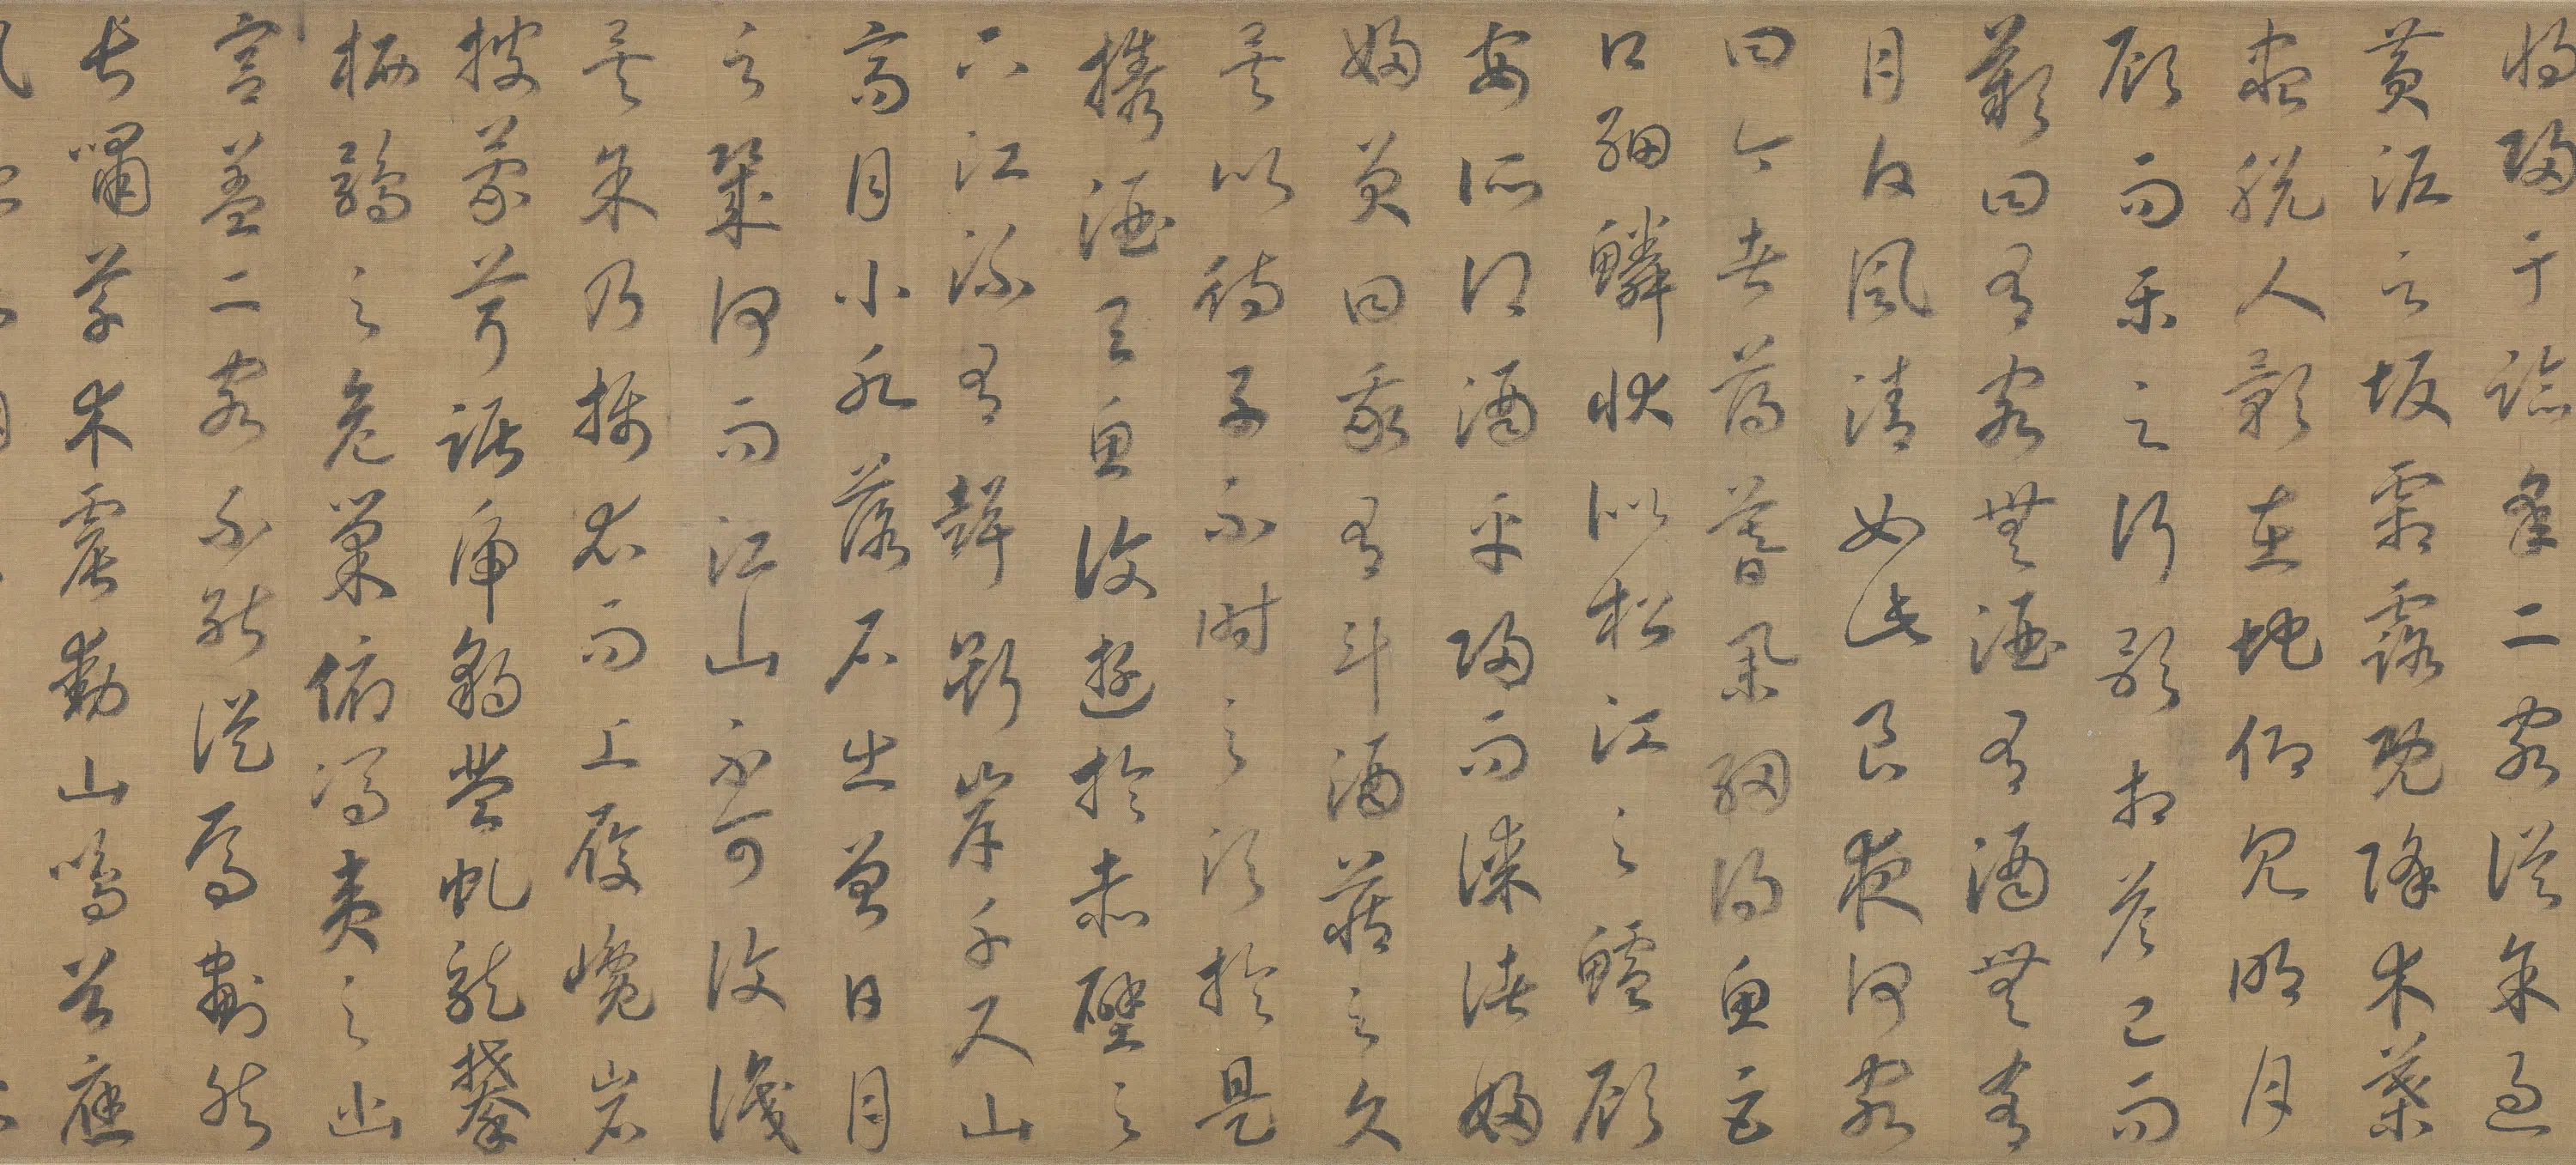 將歸于臨皋二客從余過
黃泥之坂霜露既降木葉
盡脫人影在地仰見明月
顧而樂之行歌相答已而
歎曰有客無酒有酒無肴
月白風清如此良夜何客
曰今者薄暮舉網得魚巨
口細鱗狀似松江之鱸顧
安所得酒乎歸而謀諸婦
婦曰我有斗酒藏之久
矣以待子不時之須於是
攜酒與魚復遊於赤壁之
下江流有聲斷岸千尺山
高月小水落石出曾日月
之幾何而江山不可復識
矣余乃攝衣而上履巉岩
披蒙茸踞虎豹登虬龍攀
栖鶻之危巢俯馮夷之幽
宮蓋二客不能從焉劃然
長嘯草木震動山鳴谷應